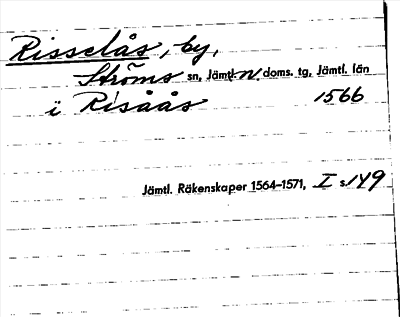 Risselås, by,
Ströms sn, Jämtl. n. doms. tg, Jämtl. län
i Risåås 1566
Jämtl. Räkenskaper 1564–1571, I s. 149